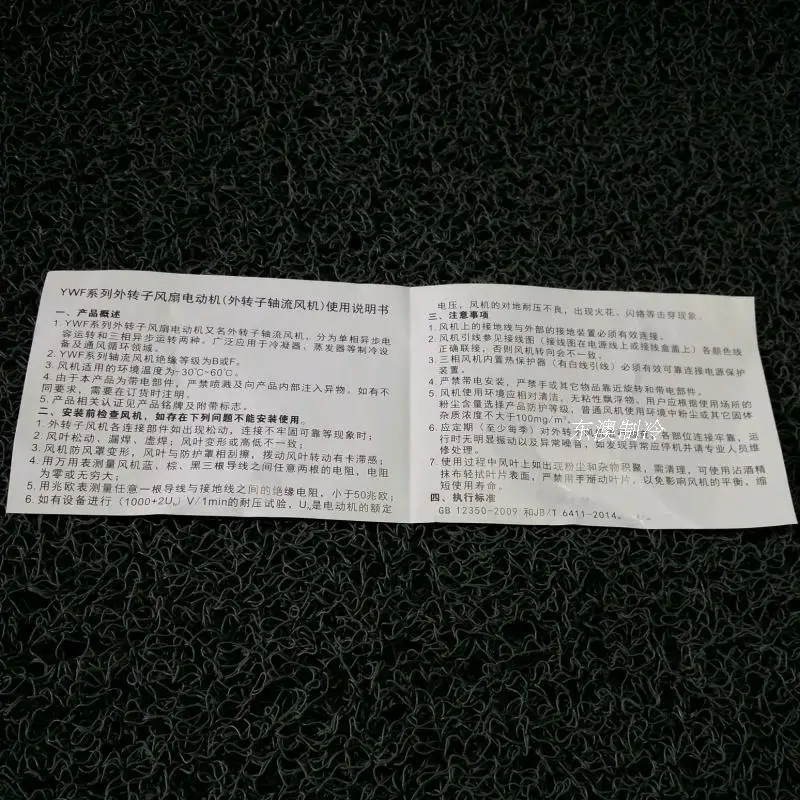 YWF系列外转子风扇电动机(外转子轴流风机)使用说明书
一、产品概述
1.YWF系列外转子风扇电动机又名外转子轴流风机，分为单相异步电
容运转和三相异步运转两种。广泛应用于冷凝器、蒸发器等制冷设
备及通风循环领域。
2.YWF系列轴流风机绝缘等级为B或F。
3.风机适用的环境温度为-30℃~60℃。
4.由于本产品为带电部件，严禁喷溅及向产品内部注入异物。如有不
同要求，需要在订货时注明。
5.产品相关认证见产品铭牌及附带标志。
二、安装前检查风机，如存在下列问题不能安装使用。
1.外转子风机各连接部件如出现松动，连接不牢固可靠等现象时；
2.风叶松动、漏焊、虚焊；风叶变形或高低不一致；
3.风机防风罩变形，风叶与防护罩相刮擦，拨动风叶转动有卡滞感；
4.用万用表测量风机蓝、棕、黑三根导线之间任意两根的电阻，电阻
为零或无穷大；
5.用兆欧表测量任意一根导线与接地线之间的绝缘电阻，小于50兆欧；
6.如有设备进行（1000+2Uₙ）V/1min的耐压试验，Uₙ是电动机的额定
电压，风机的对地耐压不良，出现火花、闪烙等击穿现象。
三、注意事项
1.风机上的接地线与外部的接地装置必须有效连接。
2.风机引线参见接线图（接线图在电源线上或接线盒盖上）各颜色线
正确联接，否则风机转向会不一致。
3.三相风机内置热保护器（有白线引线）必须有效可靠连接电源保护
装置。
4.严禁带电安装，严禁手或其它物品靠近旋转和带电部件。
5.风机使用环境应相对清洁，无粘性飘浮物。用户应根据使用场所的
粉尘含量选择产品防护等级，普通风机使用环境中粉尘或其它固体
杂质浓度不大于100mg/m³。
6.应定期（至少每季）对外转 各部位连接牢靠，运
行时无明显振动以及异常噪音，如发现异常应停机并请专业人员维
修处理。
7.使用过程中风叶上如出现粉尘和杂物积聚，需清理，可使用沾酒精
抹布轻拭叶片表面，严禁用手掰动叶片，以免影响风机的平衡，缩
短使用寿命。
四、执行标准
GB 12350-2009 和JB/T 6411-2014。
东澳制冷